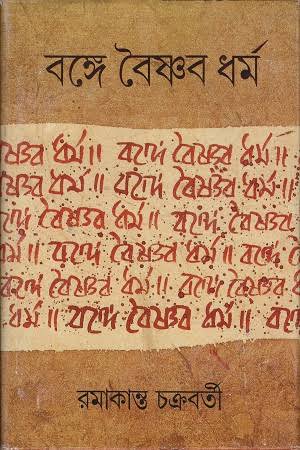 বঙ্গে বৈষ্ণব ধর্ম
বৈষ্ণব ধর্ম॥ বঙ্গে বৈষ্ণব ধর্ম॥
বঙ্গে বৈষ্ণব ধর্ম॥ বঙ্গে বৈষ্ণব ধর্ম
ধর্ম॥ বঙ্গে বৈষ্ণব ধর্ম॥ বঙ্গে বৈষ্ণব
বঙ্গে বৈষ্ণব ধর্ম॥ বঙ্গে
বঙ্গে বৈষ্ণব ধর্ম॥ বঙ্গে বৈষ্ণব ধর্ম
ধর্ম॥ বঙ্গে বৈষ্ণব ধর্ম॥ বঙ্গে
রমাকান্ত চক্রবর্তী